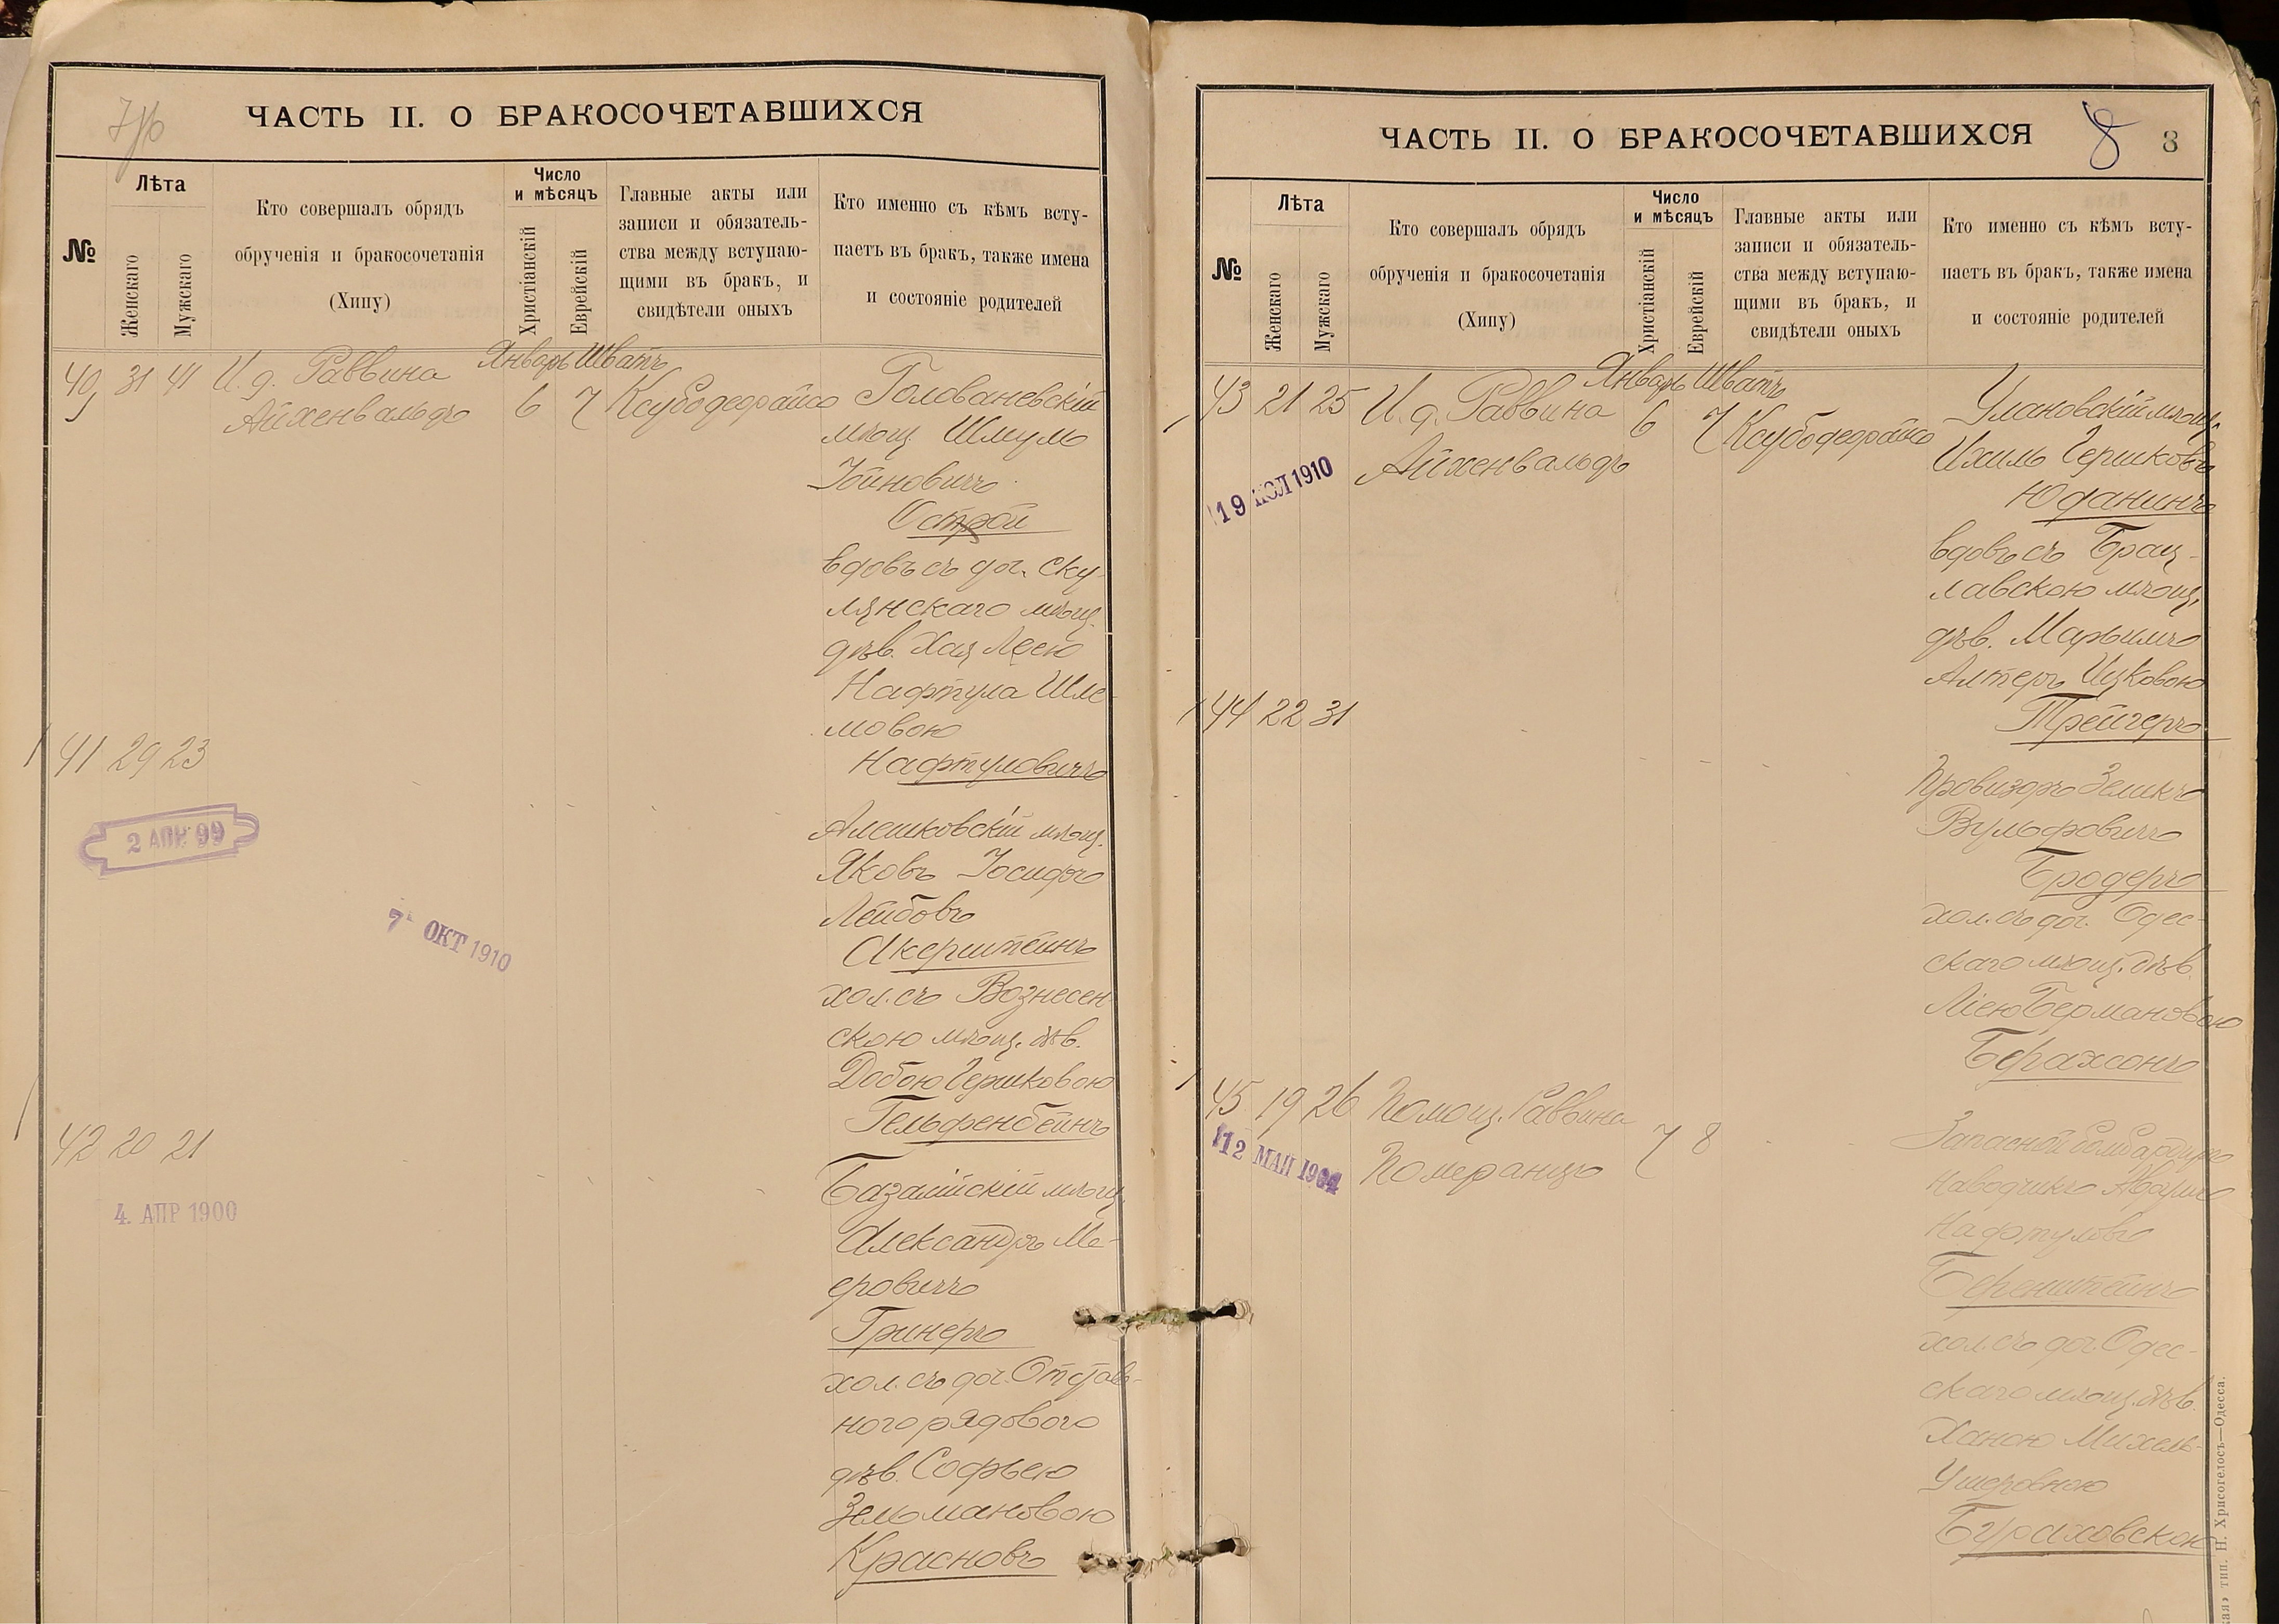 7/об
ЧАСТЬ II. О БРАКОСОЧЕТАВШИХСЯ
№
Лѣта
Женскаго
Мужскаго
Кто совершалъ обрядъ
обрученія и бракосочетанія
(Хипу)
Число
и мѣсяцъ
Христіанскій
Еврейскій
Главные акты или
записи и обязатель-
ства между вступаю-
щими въ бракъ, и
свидѣтели оныхъ
Кто именно съ кѣмъ всту-
паетъ въ бракъ, также имена
и состояніе родителей
Январь Шватъ
40 31 41 И. д. Раввина
Айхенвальдъ
6 7 Ксубодеорайсо
Голованевскій
мѣщ. Шмулъ
Іойновичъ
Острой
вдовъ съ доч. Ску-
лянскаго мѣщ.
дѣв. Хая Леею
Нафтула Шле-
мовою
Нафтуловичъ
41 29 23
2 АПР 99
7 ОКТ 1910
Алешковскій мѣщ.
Яковъ Іосифъ
Лейбовъ
Акерштейнъ
хол. съ Вознесен-
скою мѣщ. дѣв.
Добою Гершковою
Гельфенбейнъ
42 20 21
4. АПР 1900
Базалійскій мѣщ.
Александръ Ме-
еровичъ
Гринеръ
хол. съ доч. Отстав-
ного рядового
дѣв. Софьею
Зельмановою
Красновъ
ЧАСТЬ II. О БРАКОСОЧЕТАВШИХСЯ
8 8
№
Лѣта
Женскаго
Мужскаго
Кто совершалъ обрядъ
обрученія и бракосочетанія
(Хипу)
Число
и мѣсяцъ
Христіанскій
Еврейскій
Главные акты или
записи и обязатель-
ства между вступаю-
щими въ бракъ, и
свидѣтели оныхъ
Кто именно съ кѣмъ всту-
паетъ въ бракъ, также имена
и состояніе родителей
Январь Шватъ
43 21 25 И. д. Раввина
Айхенвальдъ
6 7 Ксубодеорайсо
19 ИЮЛ 1910
Улановскій мѣщ.
Ихиль Гершковъ
Юданинъ
вдовъ съ Брац-
лавскою мѣщ.
дѣв. Марьимъ
Алтеръ Ицковою
Трейгеръ
44 22 31
Провизоръ Зеликъ
Вульфовичъ
Бродеръ
хол. съ доч. Одес-
скаго мѣщ. дѣв.
Ліею Бермановою
Берахсонъ
45 19 26 Помощ. Раввина
Померанцъ
7 8
12 МАЙ 1904
Запасной бомбардиръ
Наводчикъ
Нафтуловъ
Беренштейнъ
хол. съ доч. Одес-
скаго мѣщ. дѣв.
Ханою Михель-
Ушеровною
Бураховскою
тип. Н. Хрисогелосъ—Одесса.